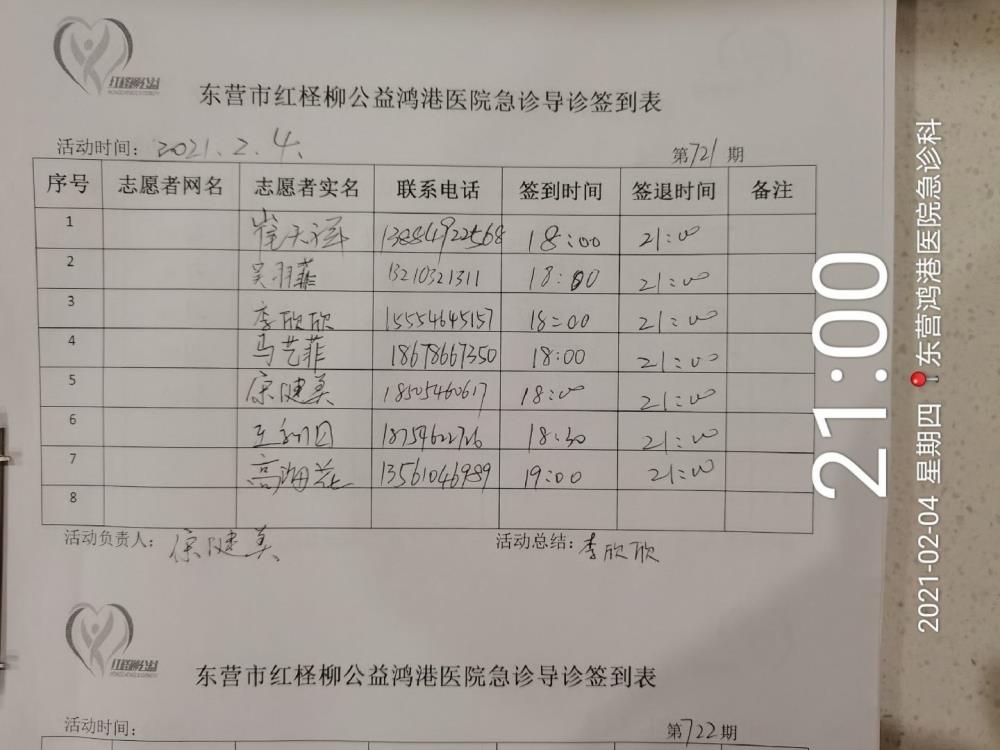 红柽柳公益
东营市红柽柳公益鸿港医院急诊导诊签到表
活动时间: 2021.2.4. 第721期
序号 志愿者网名 志愿者实名 联系电话 签到时间 签退时间 备注
1 崔天祥 13884922568 18:00 21:00
2 吴羽菲 13210321311 18:00 21:00
3 李欣欣 15554645157 18:00 21:00
4 马艺菲 18678667350 18:00 21:00
5 宗健美 18505460617 18:00 21:00
6 18754622726 18:30 21:00
7 高海花 13561046989 19:00 21:00
8
活动负责人: 宗健美 活动总结: 李欣欣
红柽柳公益
东营市红柽柳公益鸿港医院急诊导诊签到表
活动时间: 第722期
21:00
2021-02-04 星期四 东营鸿港医院急诊科